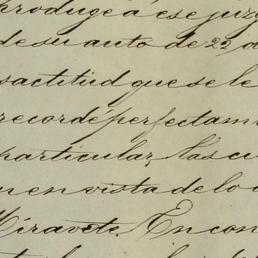 produge á ese juzg
de su auto de 22 d
sactitud que se le
recordé perfectam
particular, las cu
n en vista de lo
Miravete. En con